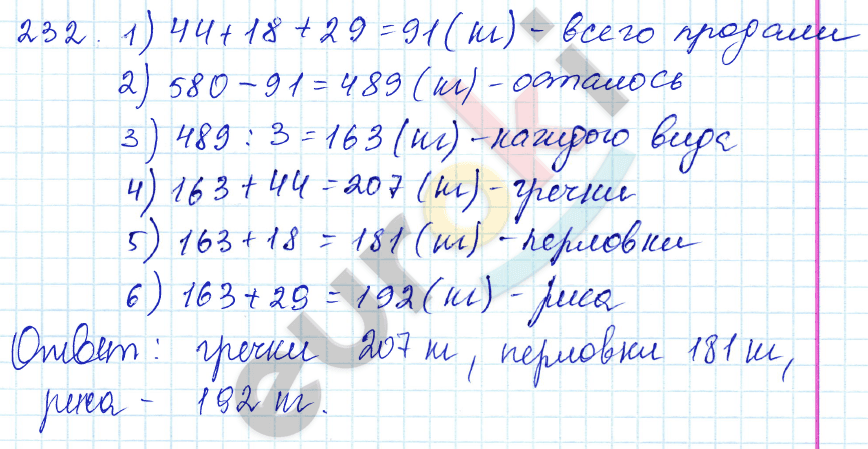 232. 1) 44 + 18 + 29 = 91 (кг) - всего продали
2) 580 - 91 = 489 (кг) - осталось
3) 489 : 3 = 163 (кг) - каждого вида
4) 163 + 44 = 207 (кг) - гречки
5) 163 + 18 = 181 (кг) - перловки
6) 163 + 29 = 192 (кг) - риса
Ответ: гречки 207 кг, перловки 181 кг,
риса - 192 кг.
euroki